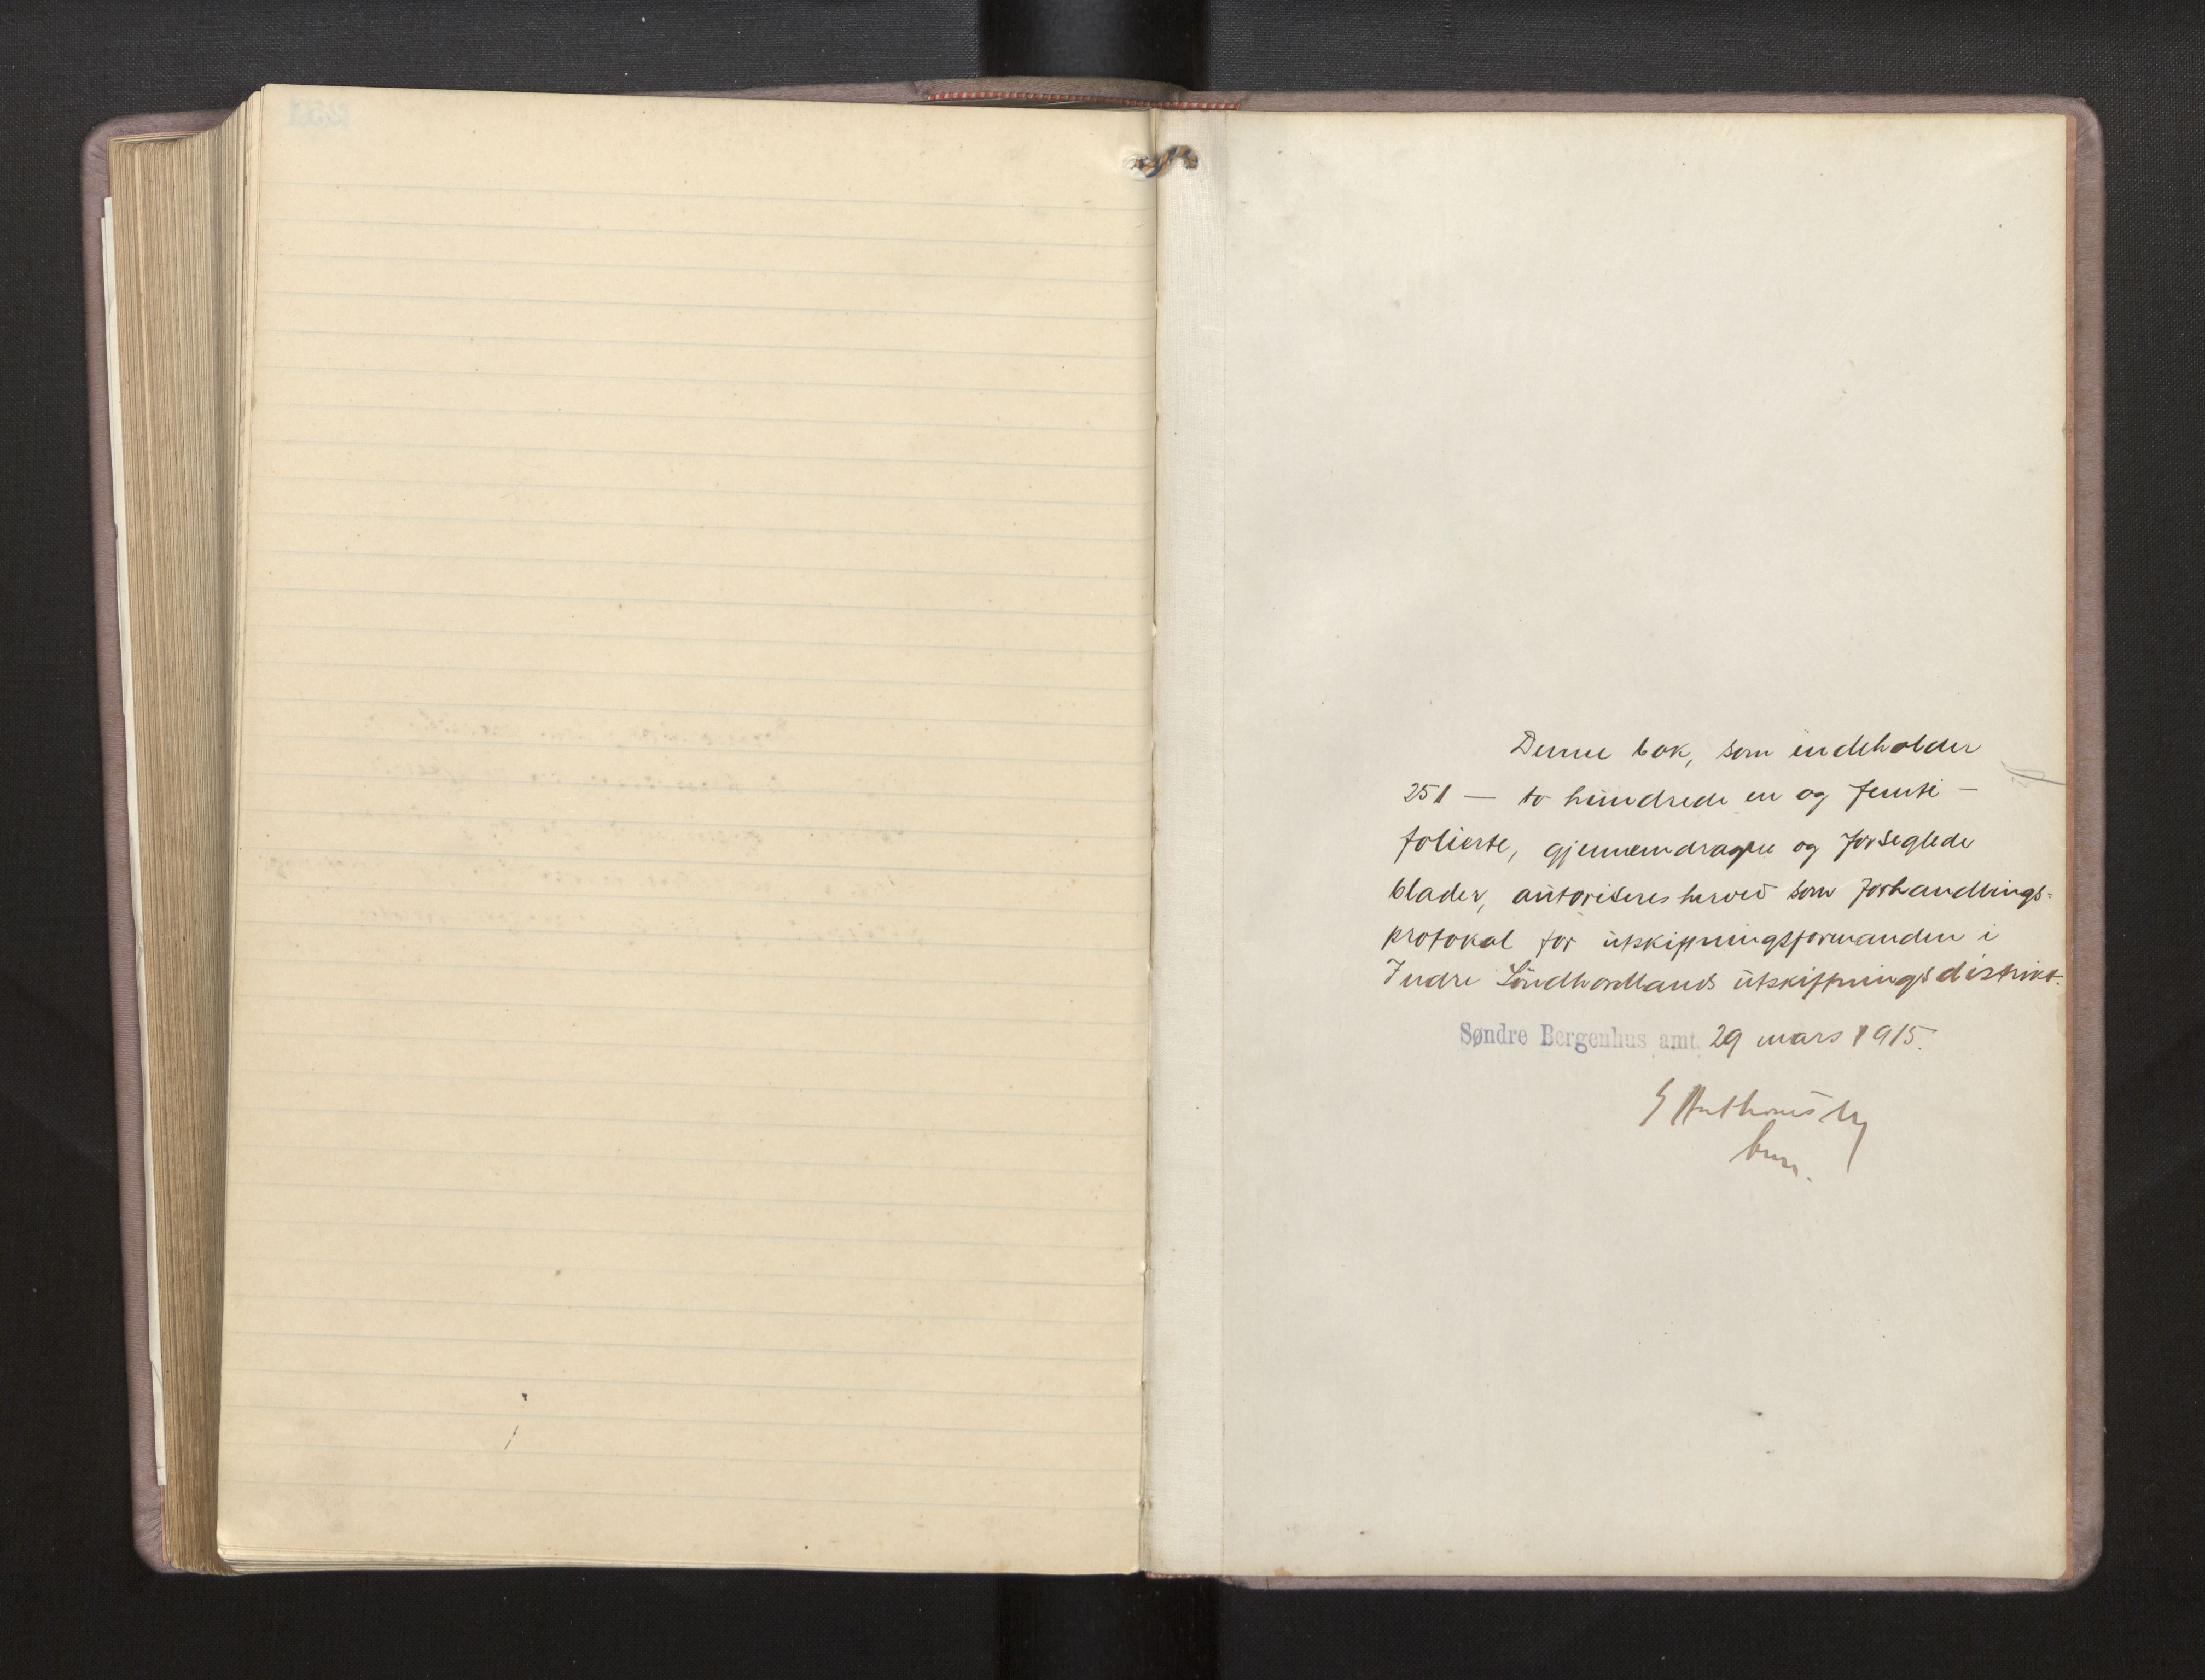 Denne bok, som indeholder
251 — to hundrede en og femti —
folierte, gjennemdragne og forseglede
blader, autoriseres herved som forhandlings=
protokol for utskiftningsformanden i
Indre Söndhordlands utskiftningsdistrikt.
Søndre Bergenhus amt. 29 mars 1915.